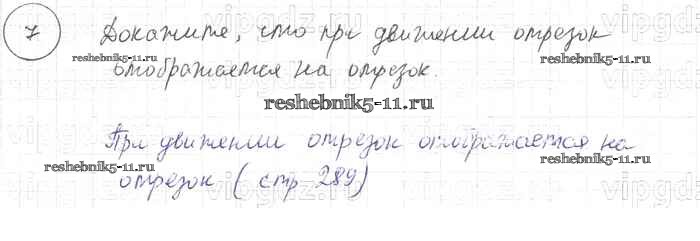 7 Докажите, что при движении отрезок
отображается на отрезок.
reshebnik5-11.ru
reshebnik5-11.ru
reshebnik5-11.ru
При движении отрезок отображается на
reshebnik5-11.ru
reshebnik5-11.ru
отрезок ( стр 289)
vipgdz
vipgdz
vipgdz
vipgdz